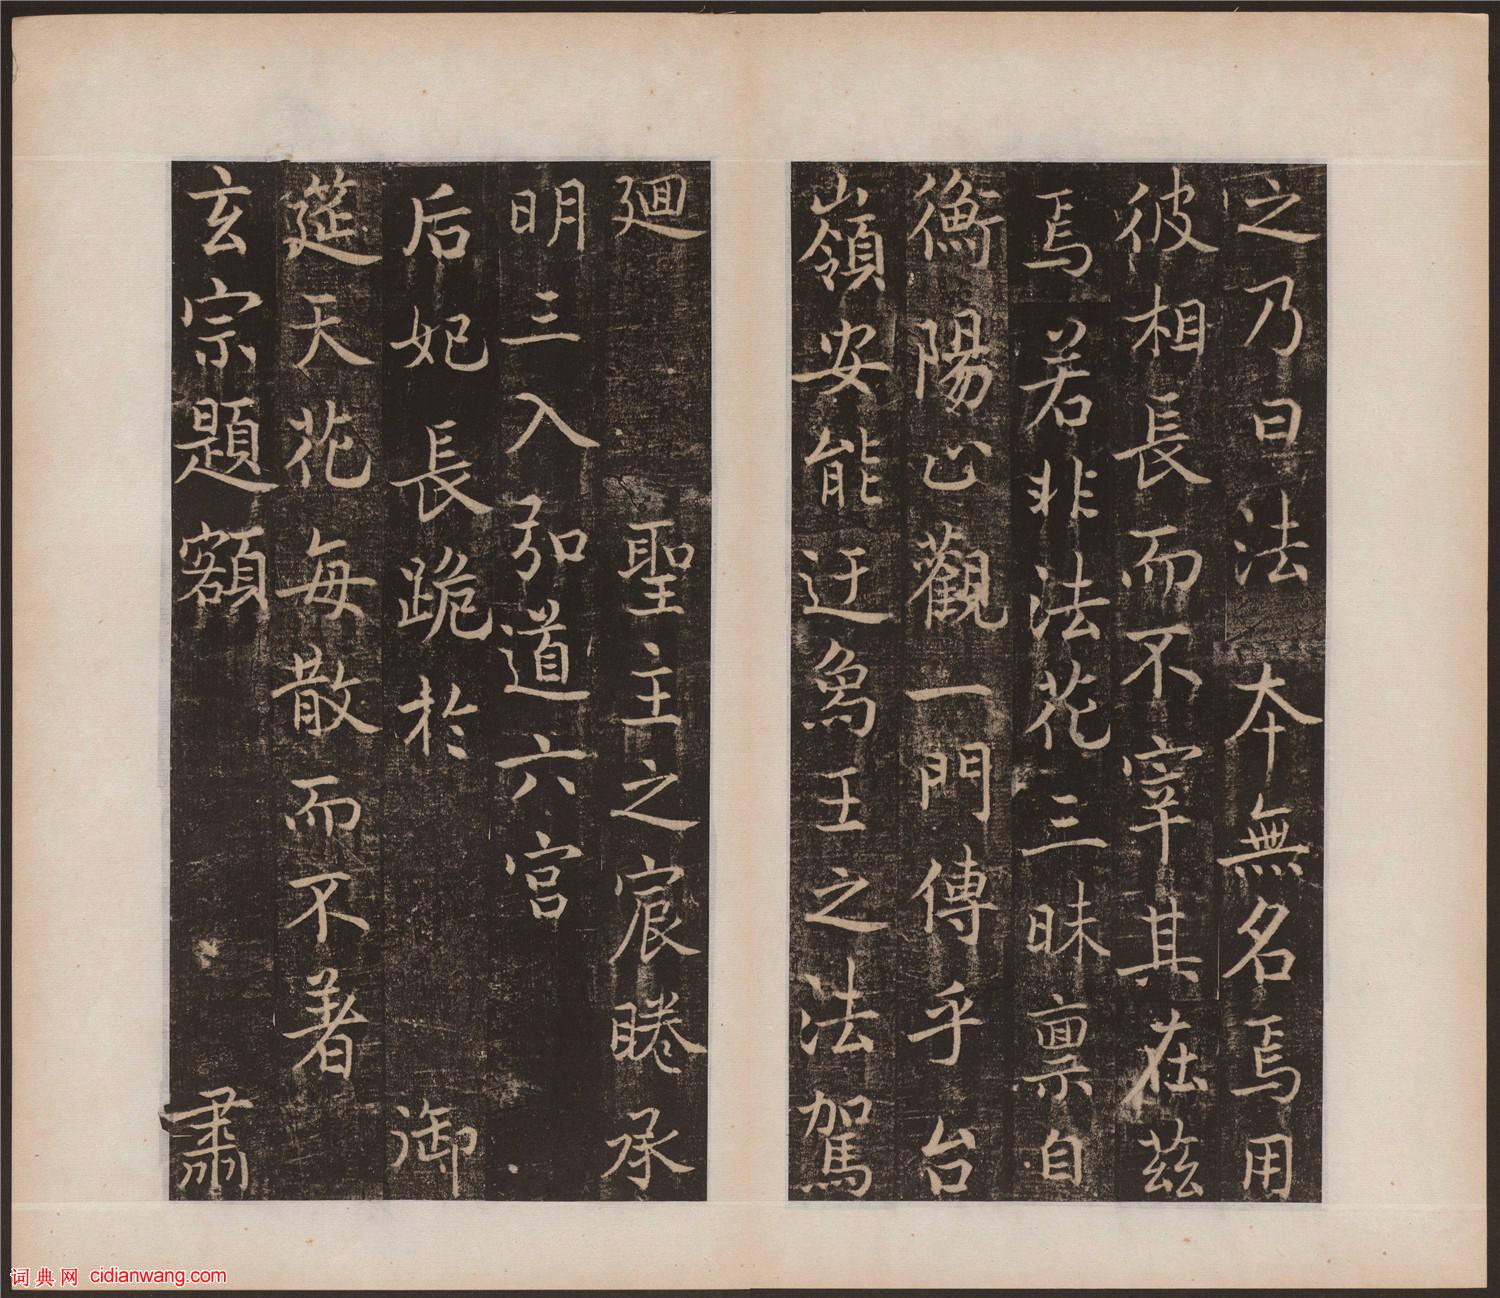 之乃曰法本無名焉用
彼相長而不宰其在茲
焉若非法花三昧禀自
衡陽止觀一門傳乎台
嶺安能迂萬王之法駕
迴聖主之宸睠承
明三入弘道六宮
后妃長跪於御
筵天花每散而不著
玄宗題額肅
词典网 cidianwang.com